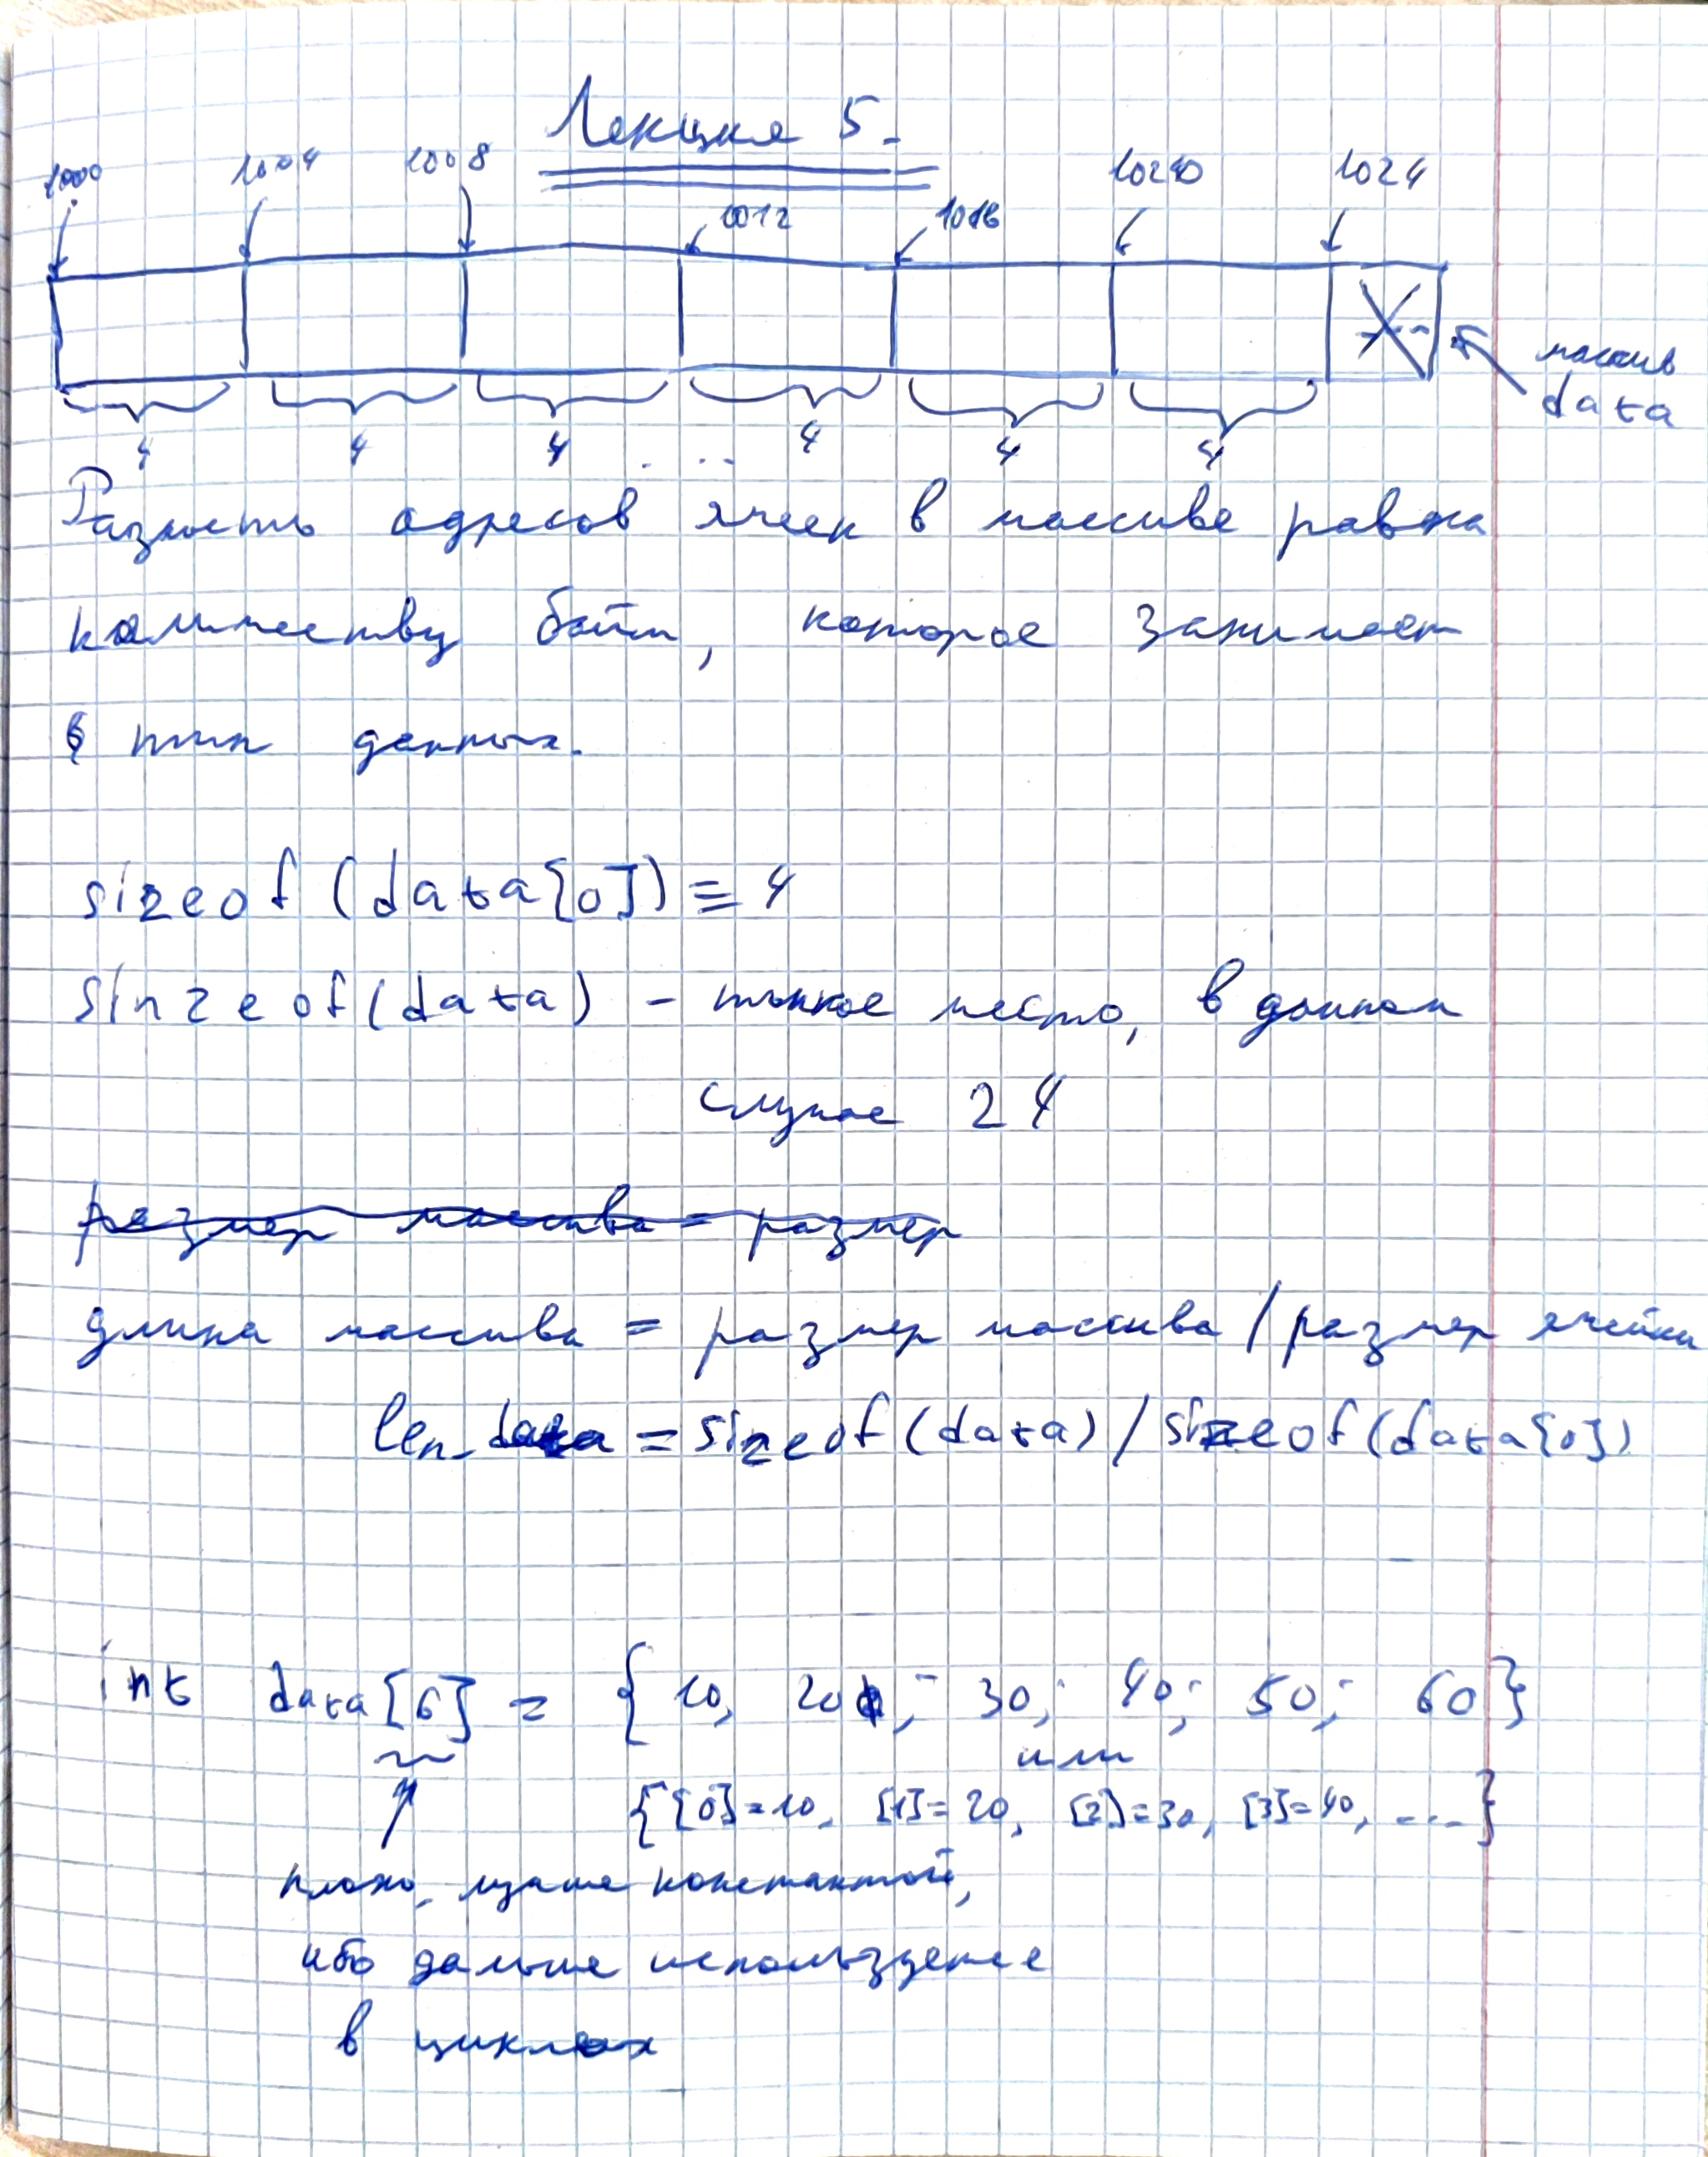 Лекция 5.
1000 1004 1008 1012 1016 1020 1024
массив
data
4 4 4 ... 4 4 4
Разность адресов ячеек в массиве равна
количеству байт, которое занимает
тип данных.
sizeof(data[0]) = 4
sinzeof(data) - тонкое место, в данном
случае 24
размер массива = размер
длина массива = размер массива / размер ячейки
len_data = sizeof(data) / sizeof(data[0])
int data[6] = { 10, 20; 30; 40; 50; 60 }
или
{[0]=10, [1]=20, [2]=30, [3]=40, ... }
плохо, лучше константой,
ибо дальше использдение
в циклах